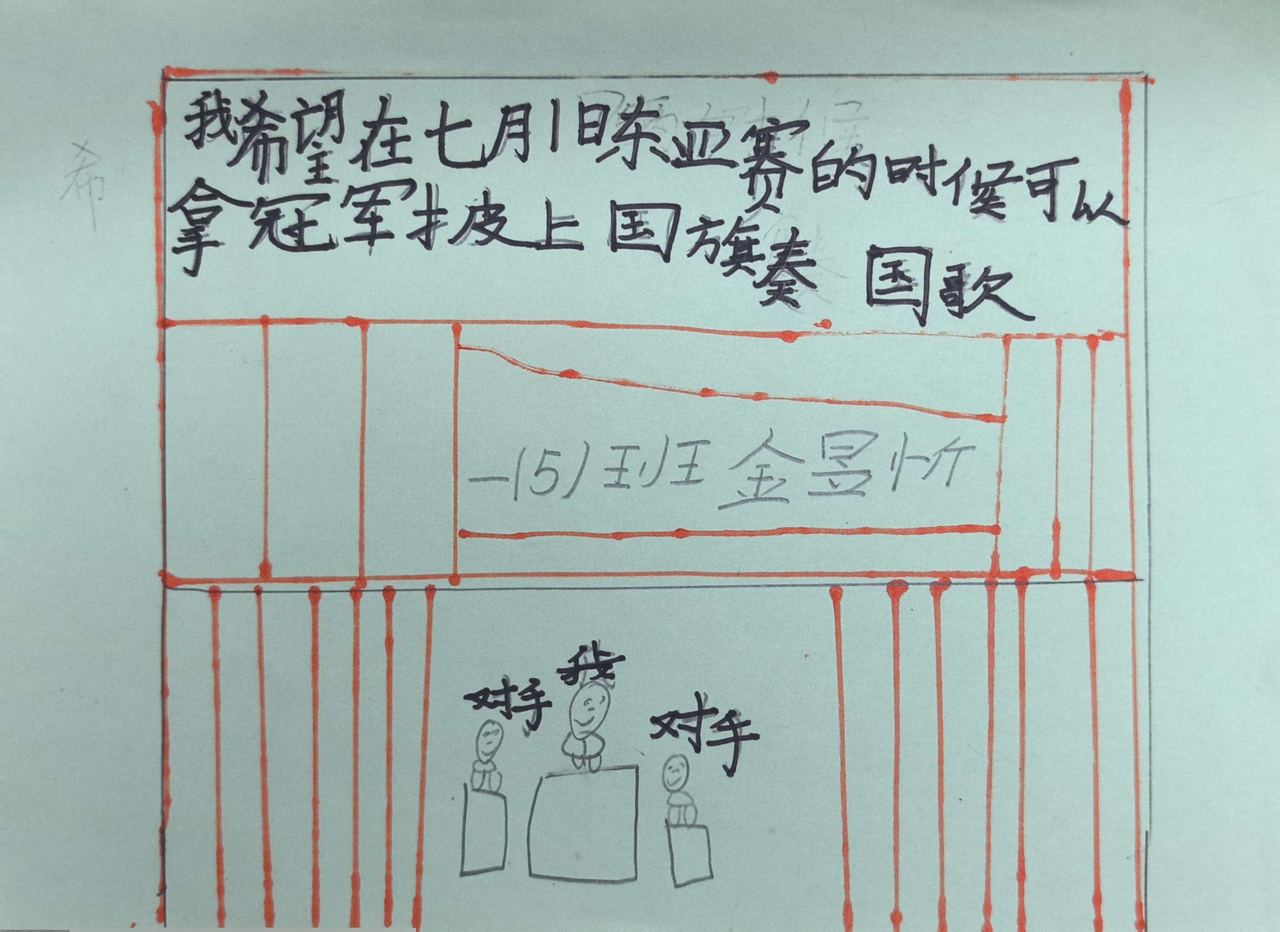 我希望在七月1日东亚赛的时候可以
拿冠军披上国旗奏国歌
希
一(5)班金昱忻
我
对手
对手